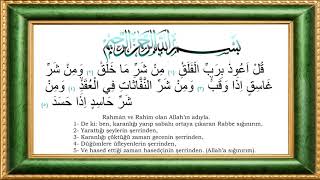 بِسْمِ اللهِ الرَّحْمٰنِ الرَّحِيمِ
قُلْ اَعُوذُ بِرَبِّ الْفَلَقِۙ ﴿١﴾ مِنْ شَرِّ مَا خَلَقَۙ ﴿٢﴾ وَمِنْ شَرِّ
غَاسِقٍ اِذَا وَقَبَۙ ﴿٣﴾ وَمِنْ شَرِّ النَّفَّاثَاتِ فِي الْعُقَدِۙ ﴿٤﴾ وَمِنْ
شَرِّ حَاسِدٍ اِذَا حَسَدَ ﴿٥﴾
Rahmân ve Rahîm olan Allah'ın adıyla.
1- De ki: ben, karanlığı yarıp sabahı ortaya çıkaran Rabbe sığınırım.
2- Yarattığı şeylerin şerrinden,
3- Karanlığı çöktüğü zaman gecenin şerrinden,
4- Düğümlere üfleyenlerin şerrinden,
5- Ve hased ettiği zaman hasedçinin şerrinden. (Allah'a sığınırım).